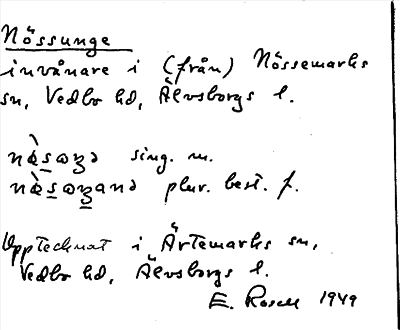 Nössunge
invånare i (från) Nössemarks
sn, Vedbo hd, Älvsborgs l.
sing. m.
plur. best. f.
Upptecknat i Ärtemarks sn,
Vedbo hd, Älvsborgs l.
E. Rosell 1949